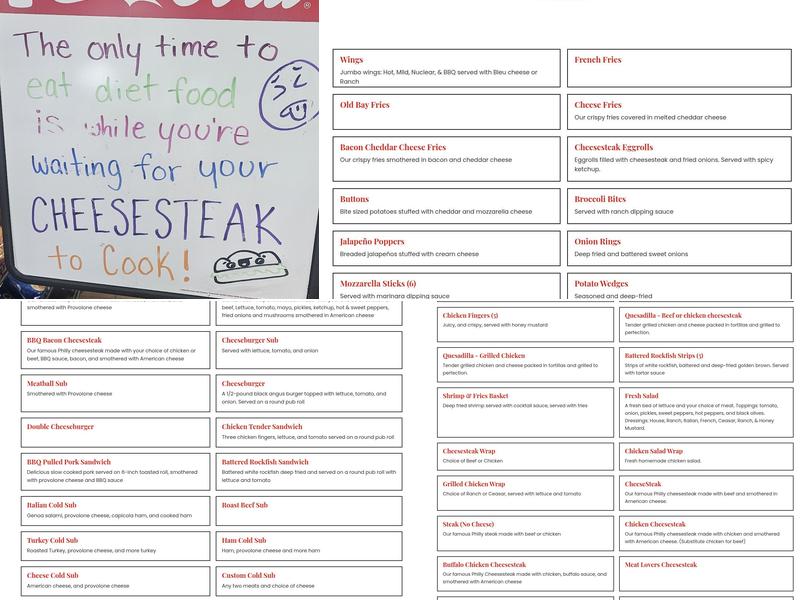 The only time to
eat diet food
is while you're
waiting for your
CHEESESTEAK
to Cook!
Wings
Jumbo wings: Hot, Mild, Nuclear, & BBQ served with Bleu cheese or
Ranch
French Fries
Old Bay Fries
Cheese Fries
Our crispy fries covered in melted cheddar cheese
Bacon Cheddar Cheese Fries
Our crispy fries smothered in bacon and cheddar cheese
Cheesesteak Eggrolls
Eggrolls filled with cheesesteak and fried onions. Served with spicy
ketchup.
Buttons
Bite sized potatoes stuffed with cheddar and mozzarella cheese
Broccoli Bites
Served with ranch dipping sauce
Jalapeño Poppers
Breaded jalapeños stuffed with cream cheese
Onion Rings
Deep fried and battered sweet onions
Mozzarella Sticks (6)
Served with marinara dipping sauce
Potato Wedges
Seasoned and deep-fried
smothered with Provolone cheese
beef, Lettuce, tomato, mayo, pickles, ketchup, hot & sweet peppers,
fried onions and mushrooms smothered in American cheese
BBQ Bacon Cheesesteak
Our famous Philly cheesesteak made with your choice of chicken or
beef, BBQ sauce, bacon, and smothered with American cheese
Cheeseburger Sub
Served with lettuce, tomato, and onion
Meatball Sub
Smothered with Provolone cheese
Cheeseburger
A 1/2-pound black angus burger topped with lettuce, tomato, and
onion. Served on a round pub roll
Double Cheeseburger
Chicken Tender Sandwich
Three chicken fingers, lettuce, and tomato served on a round pub roll.
BBQ Pulled Pork Sandwich
Delicious slow cooked pork served on 6-inch toasted roll, smothered
with provolone cheese and BBQ sauce
Battered Rockfish Sandwich
Battered white rockfish deep fried and served on a round pub roll with
lettuce and tomato
Italian Cold Sub
Genoa salami, provolone cheese, capicola ham, and cooked ham
Roast Beef Sub
Turkey Cold Sub
Roasted Turkey, provolone cheese, and more turkey
Ham Cold Sub
Ham, provolone cheese and more ham
Cheese Cold Sub
American cheese, and provolone cheese
Custom Cold Sub
Any two meats and choice of cheese
Chicken Fingers (5)
Juicy, and crispy, served with honey mustard
Quesadilla - Beef or chicken cheesesteak
Tender grilled chicken and cheese packed in tortillas and grilled to
perfection.
Quesadilla - Grilled Chicken
Tender grilled chicken and cheese packed in tortillas and grilled to
perfection.
Battered Rockfish Strips (5)
Strips of white rockfish, battered and deep-fried golden brown. Served
with tartar sauce
Shrimp & Fries Basket
Deep fried shrimp served with cocktail sauce, served with fries
Fresh Salad
A fresh bed of lettuce and your choice of meat, Toppings: tomato,
onion, pickles, sweet peppers, hot peppers, and black olives.
Dressings: House, Ranch, Italian, French, Ceasar, Ranch, & Honey
Mustard.
Cheesesteak Wrap
Choice of Beef or Chicken
Chicken Salad Wrap
Fresh homemade chicken salad.
Grilled Chicken Wrap
Choice of Ranch or Ceasar, served with lettuce and tomato
CheeseSteak
Our famous Philly cheesesteak made with beef and smothered in
American cheese.
Steak (No Cheese)
Our famous Philly steak made with beef or chicken
Chicken Cheesesteak
Our famous Philly cheesesteak made with chicken and smothered
with American cheese. (Substitute chicken for beef)
Buffalo Chicken Cheesesteak
Our famous Philly Cheesesteak made with chicken, buffalo sauce, and
smothered with American cheese
Meat Lovers Cheesesteak